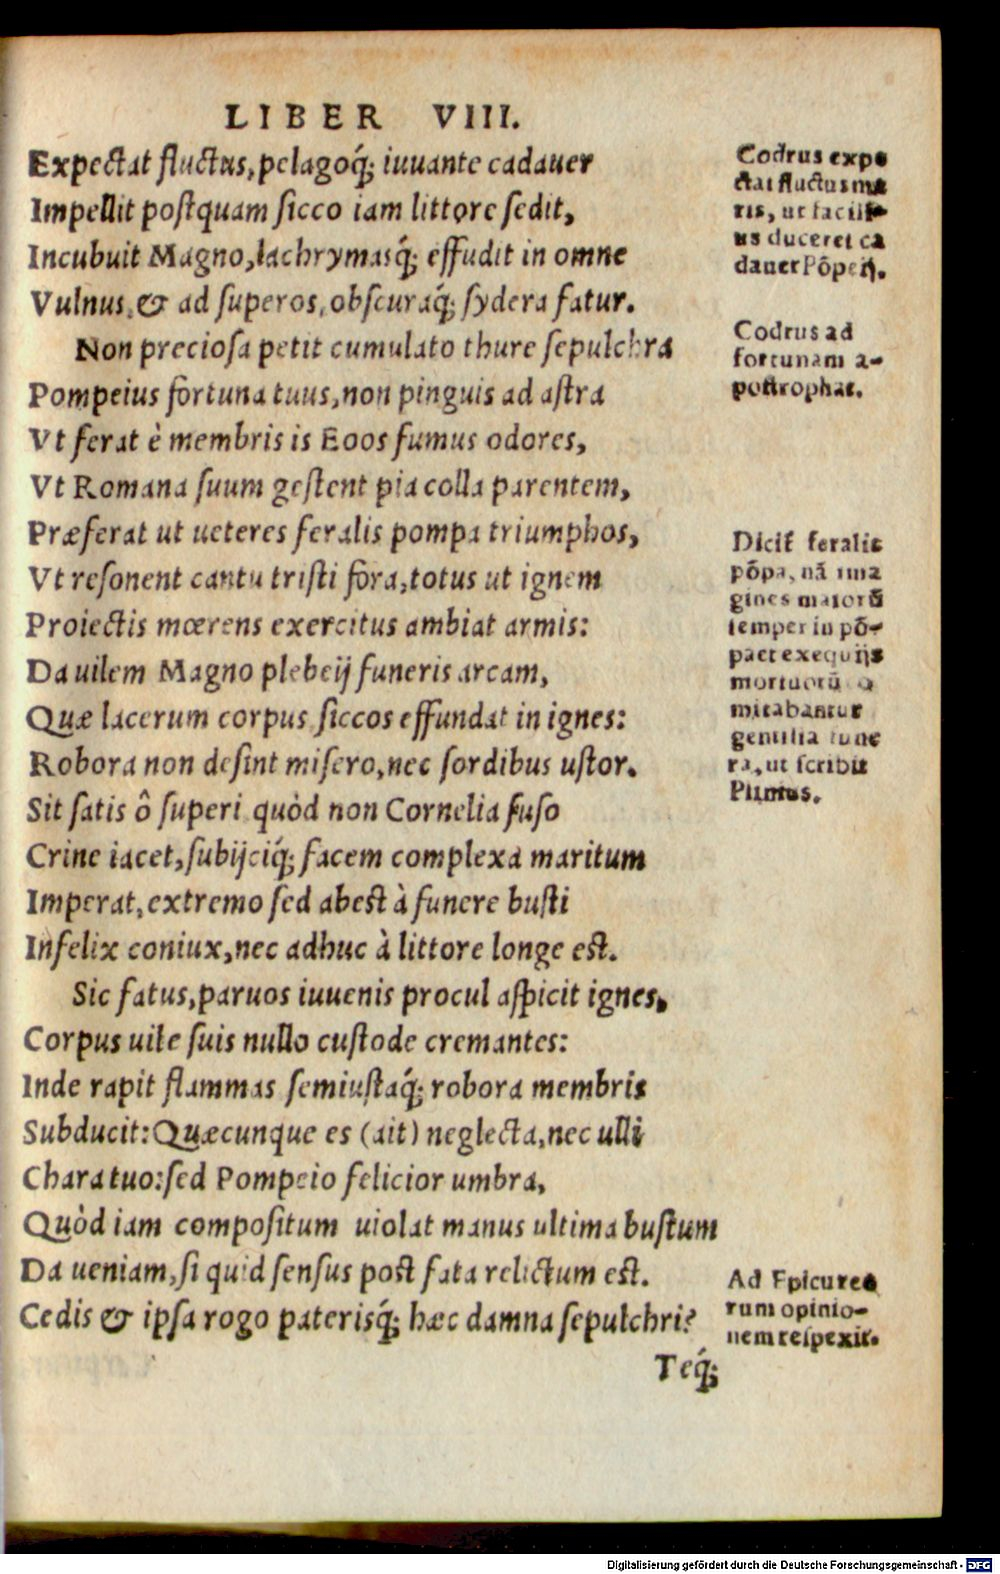 LIBER VIII.
Expectat fluctus, pelagoq́; iuuante cadauer
Impellit postquam sicco iam littore sedit,
Incubuit Magno, lachrymasq́; effudit in omne
Vulnus, & ad superos, obscuraq́; sydera fatur.
Non preciosa petit cumulato thure sepulchra
Pompeius fortuna tuus, non pinguis ad astra
Vt ferat è membris is Eoos fumus odores,
Vt Romana suum gestent pia colla parentem,
Præferat ut ueteres feralis pompa triumphos,
Vt resonent cantu tristi fora, totus ut ignem
Proiectis mœrens exercitus ambiat armis:
Da uilem Magno plebeij funeris arcam,
Quæ lacerum corpus siccos effundat in ignes:
Robora non desint misero, nec sordibus ustor.
Sit satis ô superi quòd non Cornelia fuso
Crine iacet, subijciq́; facem complexa maritum
Imperat, extremo sed abest à funere busti
Infelix coniux, nec adhuc à littore longe est.
Sic fatus, paruos iuuenis procul aspicit ignes,
Corpus uile suis nullo custode cremantes:
Inde rapit flammas semiustaq́; robora membris
Subducit: Quæcunque es (ait) neglecta, nec ulli
Chara tuo: sed Pompeio felicior umbra,
Quòd iam compositum uiolat manus ultima bustum
Da ueniam, si quid sensus post fata relictum est.
Cedis & ipsa rogo paterisq́; hæc damna sepulchri?
Teq́;
Codrus expe
ctat fluctus ma
ris, ut facili⸗
us duceret ca
dauer Põpeij.
Codrus ad
fortunam a⸗
postrophat.
Dicit feralis
põpa, nã ima
gines maiorũ
semper in põ⸗
pa et exequijs
mortuorũ
mitabantur
gentilia fune
ra, ut scribit
Plinius.
Ad Epicureo
rum opinio⸗
nem respexit.
Digitalisierung gefördert durch die Deutsche Forschungsgemeinschaft - DFG